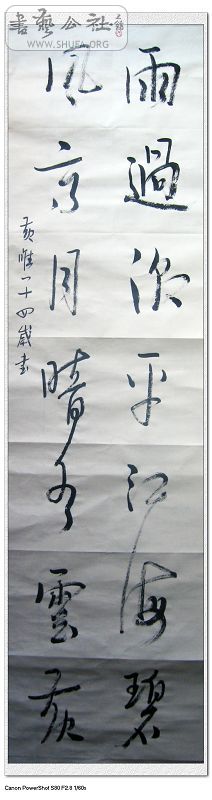 書藝公社
WWW.SHUFA.ORG
雨過潮平江海碧
風高月暗水雲黄
黄唯一十四歲書
Canon PowerShot S80 F2.8 1/60s